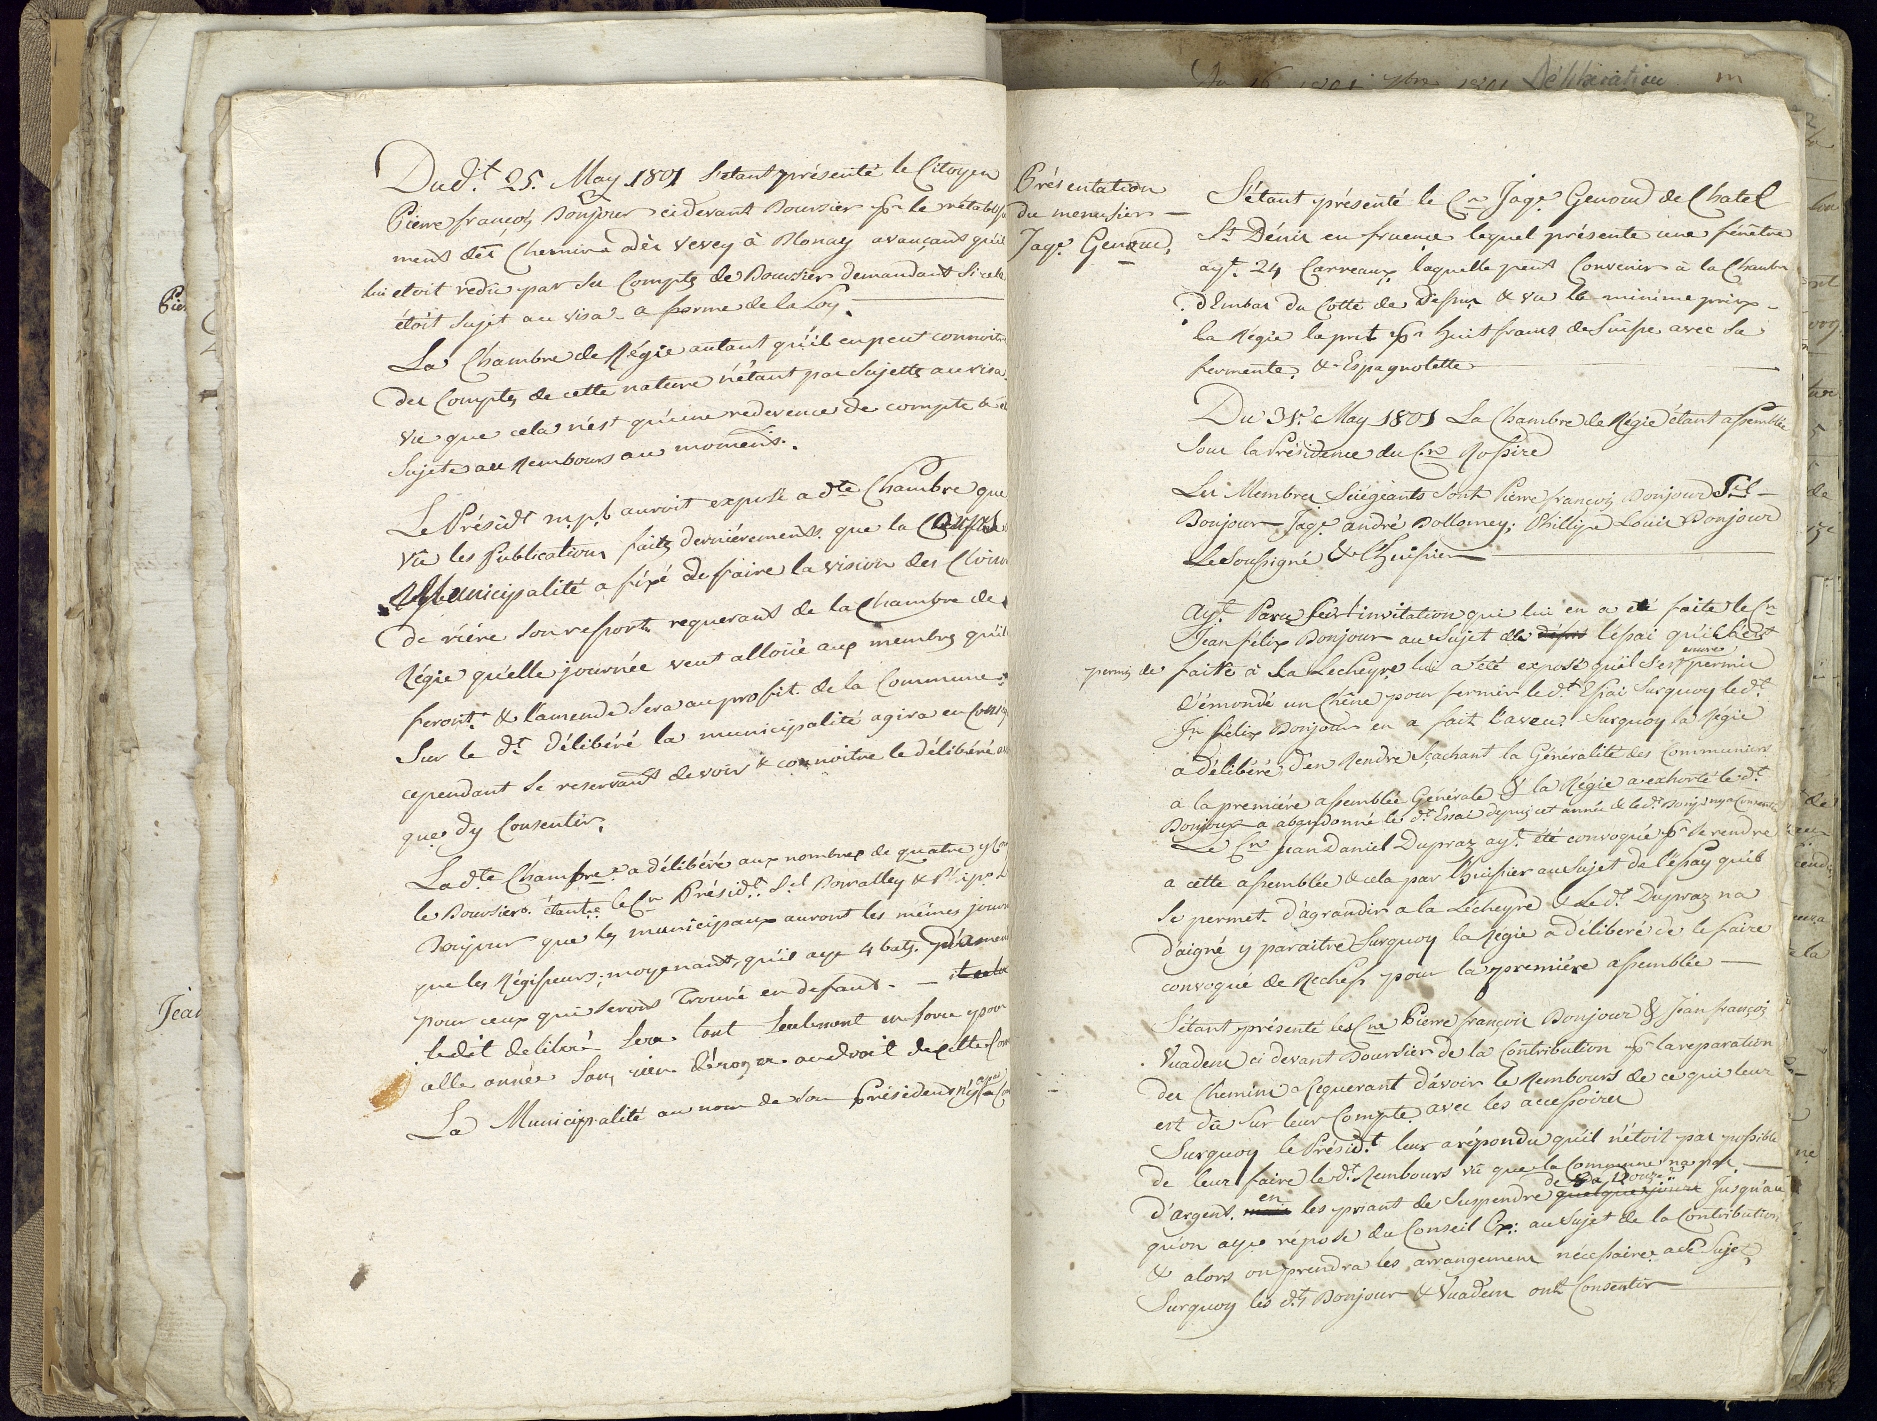 Dud.t 25. May 1801 S'etant présenté le Citoyen
Pierre françois Bonjour cidevant Boursier pr le rétablisse
ment des Chemins des Vevey à Blonay avançant qu'il
lui etoit redû par ses Compts de Boursier demandant si cela
étoit Sujet au visa a forme de la Loy.
La Chambre de Régie autant qu'il en peut connoitre
des Compts de cette nature n'étant pas Sujetts au visa
vu que cela n'est qu'une redevence de compte & 
Sujete au Rembours au moment.
Le Présidt mpl auroit exposé a dte Chambre que
Vû les Publications faits dernièrement que la
Municipalité a fixé de faire la vision des
de riére son ressort requerant de la Chambre de
Régie quelle journée veut alloüé aux membres qu'il
feront & l'amende sera au profit de la Commune
Sur le dt délibéré la municipalité agira en
cependant se reservant de voir & connoitre le délibéré
que d'y Consentir.
Ladte Chambre a délibéré aux nombres de quatre y
le Boursier étant le Cn Présidt Sel Bovalley &
Bonjour que les municipaux auront les mêmes jour
que les Régisseurs moyenant qu'il aye 4 batz. d'amen
pour ceux qui serons Trouvé en defaut. —
ledit deliberé sera tant seulement en force pour
celle année sans rien déroger audroit de cette Com
La Municipalité au nom de son Président n'y a
Pier
Jean
Délibération
Présentation
du menusier —
Jaqe Genoud,
S'étant présenté le Cn Jaqe Genoud de Chatel
St Dénis en fruence lequel présente une fénêtre
ayt 24 Carreaux laquelle peut Convenir à la Chambre
d'Embas du Cotté de Dessus & vu le minime prix
la Régie la prit pr huit francs de Suisse avec sa
fermente & Espagnolette
Du 31e May 1801 La Chambre de Régie étant assemblée
Sous la Présidence du Cn Rossire
Les Membres Siégeants sont Pierre françois Bonjour Sel
Bonjour Jaqe andré Dollomey; Phillipe Louis Bonjour
Le Soussigné & l'huissier
Ayt Paru sur l'invitation qui lui en a été faite le Cn
Jean félix Bonjour au Sujet de l'éssai qu'il s'est
permis de faire à La Lecheyre lui a été exposé qu'il s'est permis
envers
d'émondé un Chêne pour fermer le dt Essai Surquoy le dt
Jn félix Bonjour en a fait l'aveu. Surquoy la Régie
a délibéré d'en Rendre Sachant la Généralité des Communiers
a la premiére assemblée Générale & la Régie a exhorté le dt
Bonjour a abandonné le dt Essai depuis cet année & le dt Bonj. ny a Consenti
Le Cn Jean Daniel Dupraz ayt été convoqué pr se rendre
a cette assemblée & cela par l'huissier au Sujet de l'éssay qu'il
se permet d'agrandir a la Lécheyre & Le dt Dupraz na
d'aigné y paraitre Surquoy la Régie a délibéré de le faire
convoqué de Rechef pour la premiére assemblée —
S'étant présenté les Cns Pierre françois Bonjour & Jean françois
Vuadens ci devant Boursier de la Contribution pr la reparation
des Chemins Requerant d'avoir le Rembours de ce qui leur
est dû sur leur Compte avec les accessoires
Surquoy le Présidt leur a répondu qu'il n'étoit pas possible
de leur faire le dt Rembours vû que la Commune na pas
de Douze
d'argent. en les priant de Suspendre quelques jours Jusqu'au
qu'on aye réponse du Conseil Ex: au Sujet de la Contribution
& alors on prendra les arrangement nécessaires a ce Sujet,
Surquoy les dts Bonjour & Vuadens ont Consentir